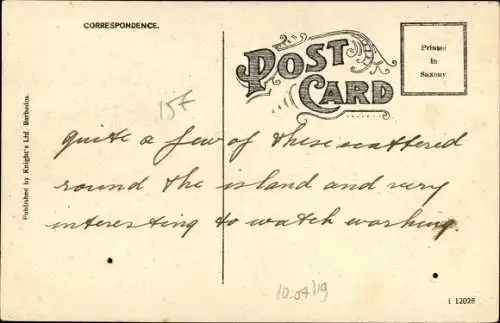 CORRESPONDENCE.
POST
CARD
Printed
in
Saxony
Published by Knight's Ltd. Barbados.
15F
quite a few of these scattered
round the island and very
interesting to watch working.
10.04/19
i 12028